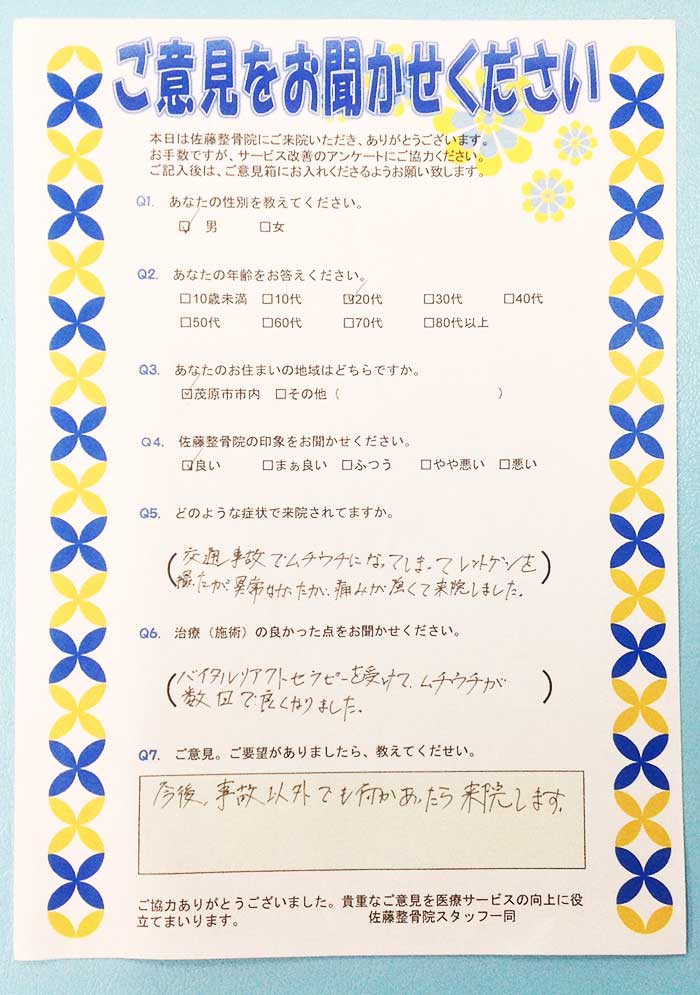 ご意見をお聞かせください
本日は佐藤整骨院にご来院いただき、ありがとうございます。
お手数ですが、サービス改善のアンケートにご協力ください。
ご記入後は、ご意見箱にお入れくださるようお願い致します。
Q1. あなたの性別を教えてください。
☑ 男 □女
Q2. あなたの年齢をお答えください。
□10歳未満 □10代 ☑20代 □30代 □40代
□50代 □60代 □70代 □80代以上
Q3. あなたのお住まいの地域はどちらですか。
☑茂原市市内 □その他（ ）
Q4. 佐藤整骨院の印象をお聞かせください。
☑良い □まぁ良い □ふつう □やや悪い □悪い
Q5. どのような症状で来院されてますか。
（交通事故でムチウチになってしまってレントゲンを
撮ったが異常なかったが、痛みが強くて来院しました。）
Q6. 治療（施術）の良かった点をお聞かせください。
（バイタルリアクトセラピーを受けて、ムチウチが
数回で良くなりました。）
Q7. ご意見。ご要望がありましたら、教えてくだせい。
今後、事故以外でも何かあったら来院します。
ご協力ありがとうございました。貴重なご意見を医療サービスの向上に役
立てまいります。 佐藤整骨院スタッフ一同